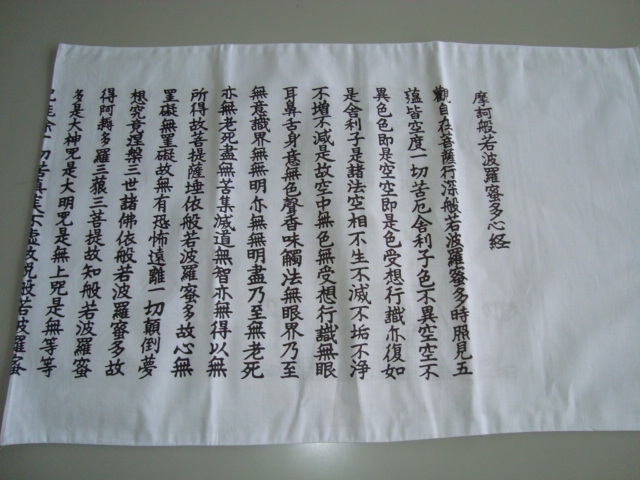 摩訶般若波羅蜜多心経
觀自在菩薩行深般若波羅蜜多時照見五
蘊皆空度一切苦厄舎利子色不異空空不
異色色即是空空即是色受想行識亦復如
是舎利子是諸法空相不生不滅不垢不浄
不増不減是故空中無色無受想行識無眼
耳鼻舌身意無色聲香味觸法無眼界乃至
無意識界無無明亦無無明盡乃至無老死
亦無老死盡無苦集滅道無智亦無得以無
所得故菩提薩埵依般若波羅蜜多故心無
罣礙無罣礙故無有恐怖遠離一切顛倒夢
想究竟涅槃三世諸佛依般若波羅蜜多故
得阿耨多羅三藐三菩提故知般若波羅蜜
多是大神咒是大明咒是無上咒是無等等
一切苦真實不虚故説般若波羅蜜